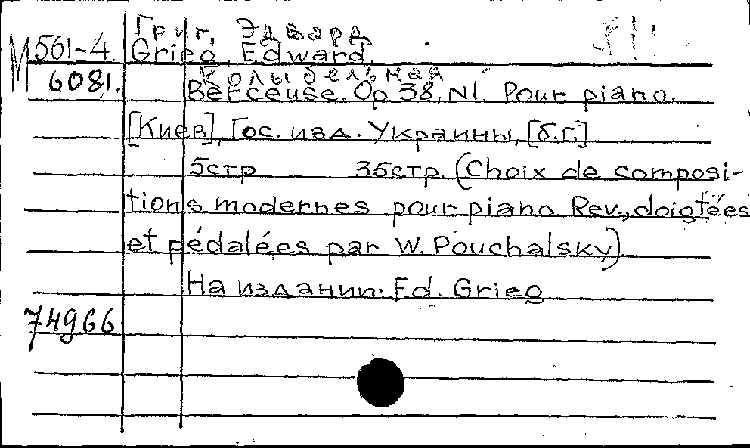 Григ, Эдвард
М 561-4 Grieg, Edward.
6081.
Колыбельная
Berceuse. Op 38, N1. Pour piano.
[Киев], Гос. изд. Украины, [б.г.]
5стр 35стр. (Choix de composi-
tions modernes pour piano Rev., doigtées
et pédalées par W. Pouchalsky)
На издании: Ed. Grieg
74966